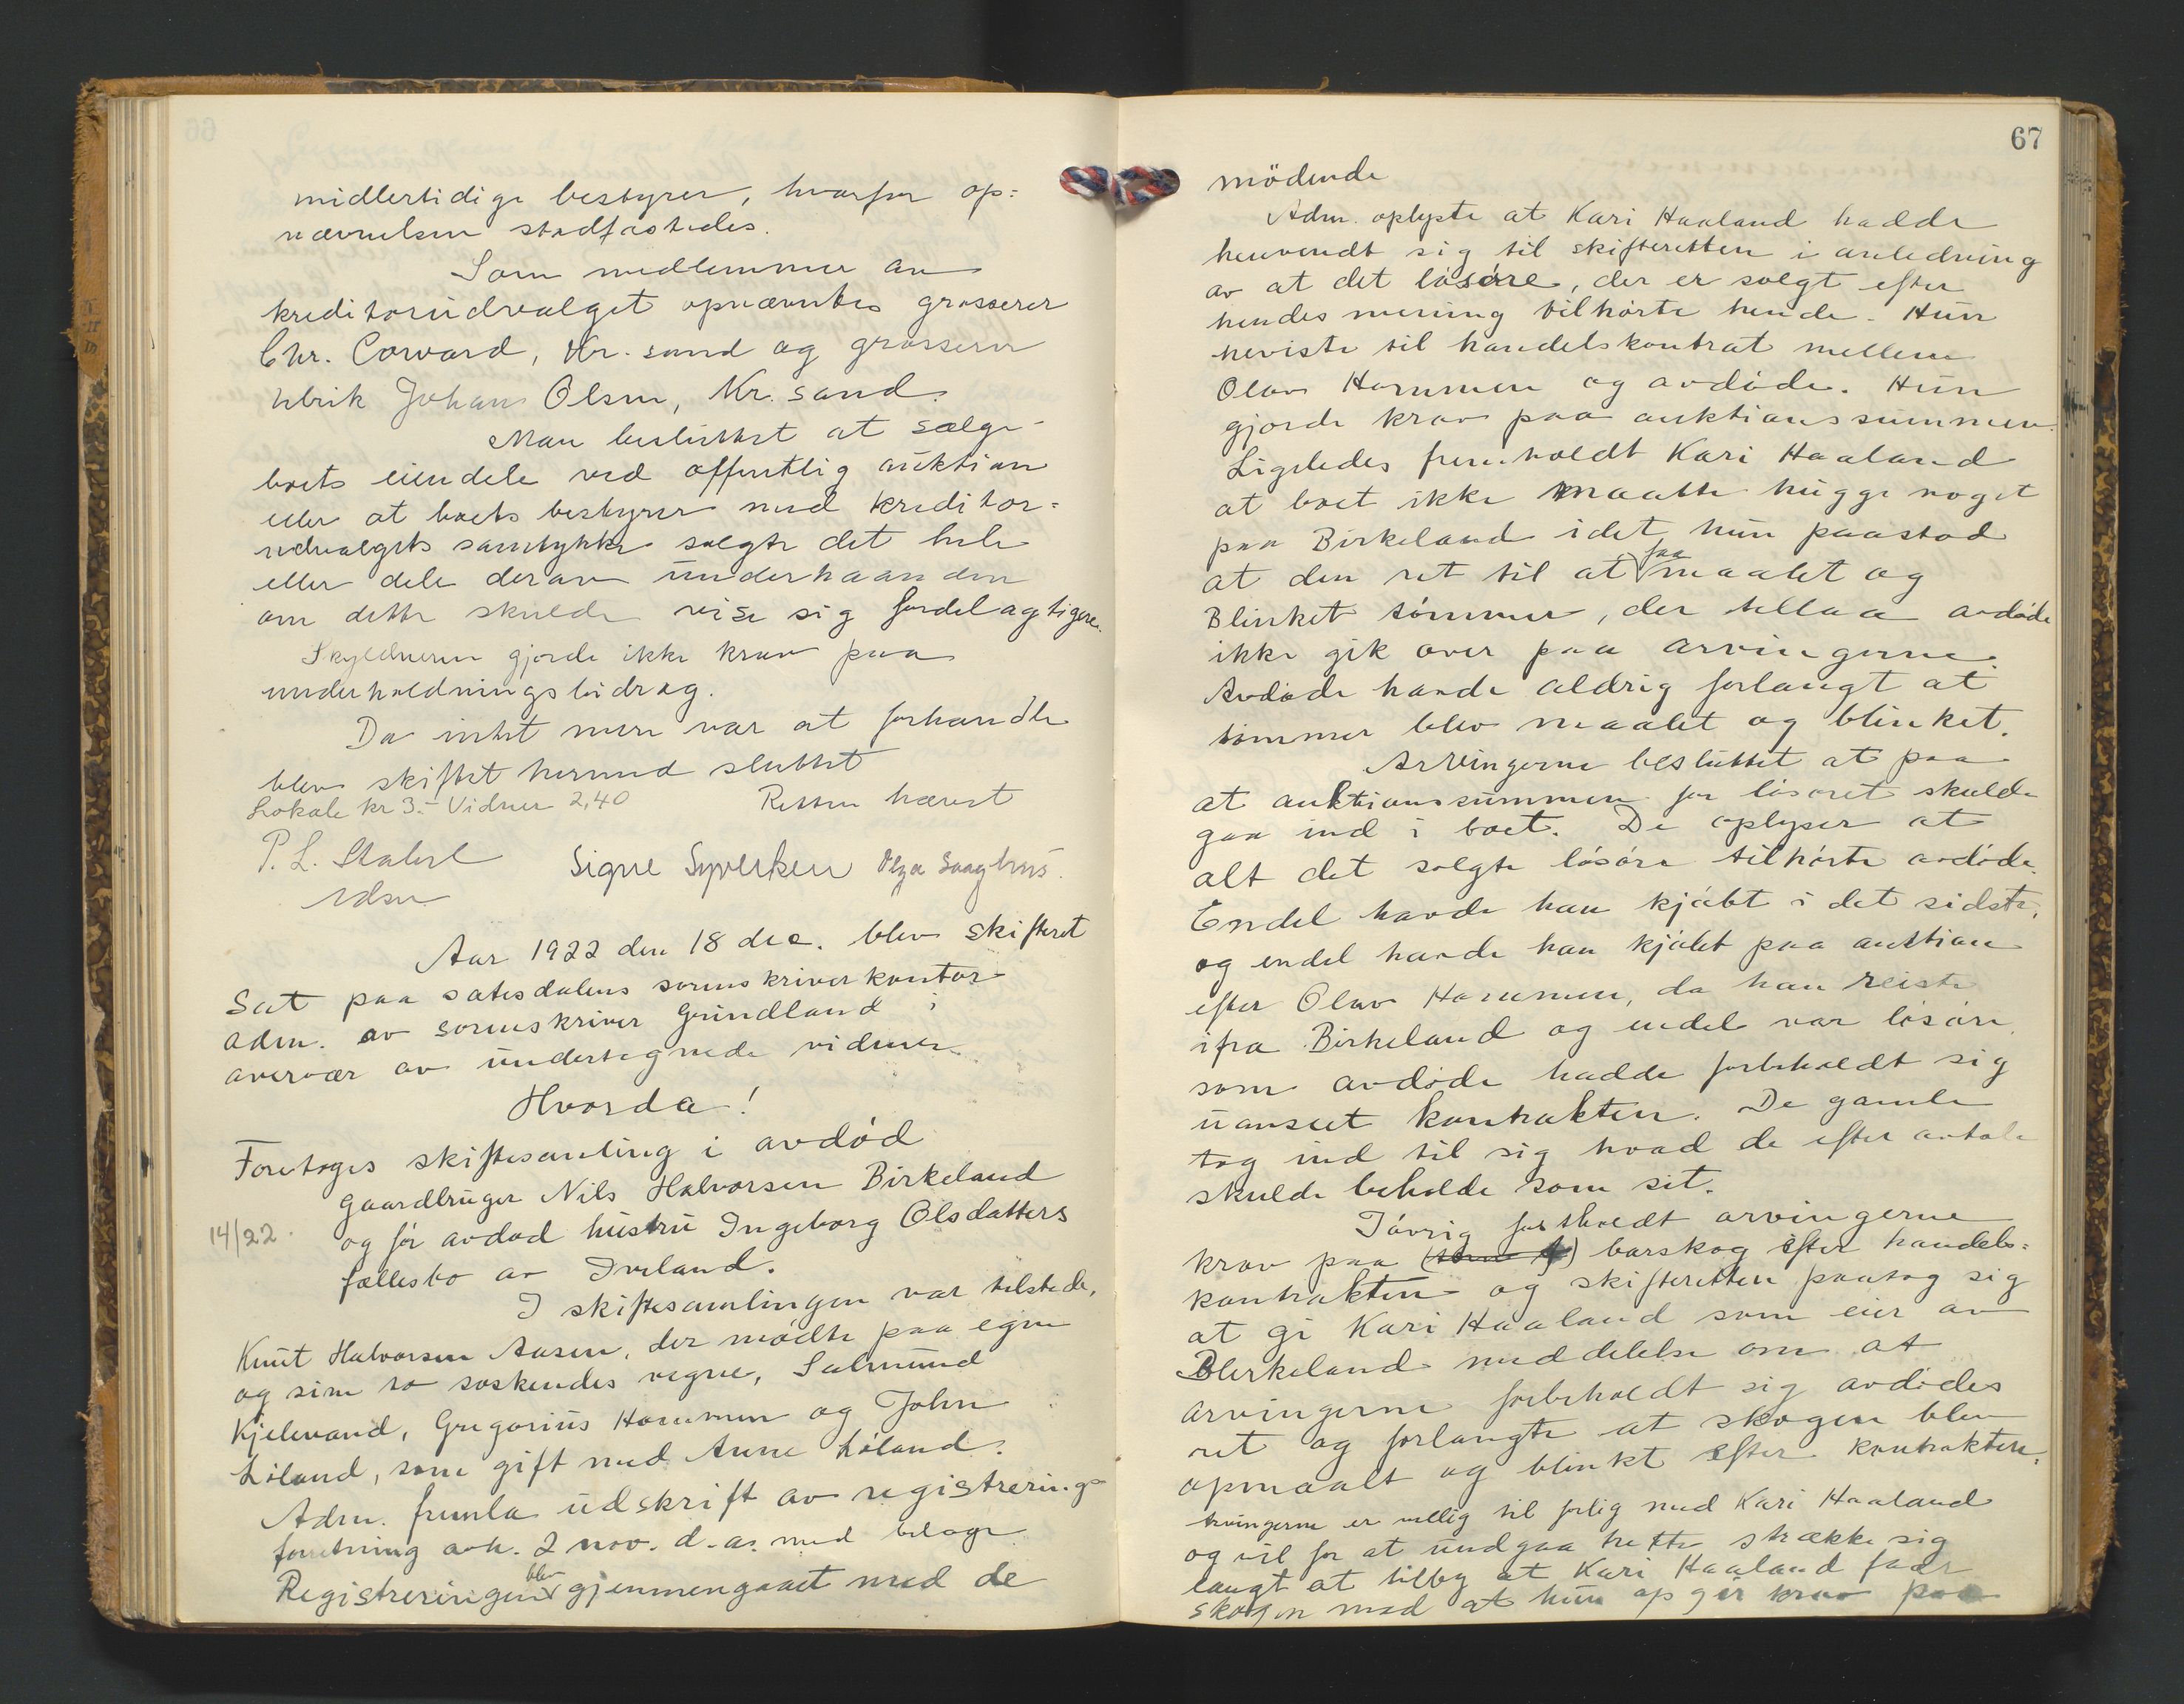 midlertidige bestyrer, hvorfor op=
nævnelsen stadfæstedes.
Som medlemmer av
kreditorudvalget opnævntes grosserer
Chr. Corvard, Kr. sand og grosserer
Johan Olsen, Kr. sand.
Man besluttet at sælge
boets eiendele ved offentlig auktion
eller at boets bestyrer med kreditor=
udvalgets samtykke solgte det hele
eller dele derav underhaanden
om dette skulde vise sig fordelagtigere.
Skyldneren gjorde ikke krav paa
underholdningsbidrag.
Da intet mere var at forhandle
blev skiftet hermed sluttet
Lokale kr 3.- Vidner 2,40 Retten hævet
P. L. Stabel
adm
Signe Syvertsen Olga Saaghus.
Aar 1922 den 18 dec. blev skifteret
Sat paa sætesdalens sorenskriverkontor
adm. av sorenskriver Grindland i
overvær av undertegnede vidner
Hvorda!
Foretoges skiftesamling i avdød
gaardbruger Nils Halvorsen Birkeland
14/22. og før avdød hustru Ingeborg Olsdatters
fællesbo av Iveland.
I skiftesamlingen var tilstede,
Knut Halvorsen Aasen, der mødte paa egne
og sine to søskendes vegne, Salmund
Kjelevand, Gregorius Hommen og John
Löland, som gift med Anne Löland.
Adm. fremla udskrift av registrerings
forretning avh. 2 nov. d.a. med bilage
Registreringen blev gjennemgaaet med de
67
mödende
Adm. oplyste at Kari Haaland hadde
henvendt sig til skifteretten i anledning
av at det lösöre, der er solgt efter
hendes mening tilhörte hende. Hun
henviste til handelskontrat mellem
Olav Hommen og avdöde. Hun
gjorde krav paa auktionssummen.
Ligeledes fremholdt Kari Haaland
at boet ikke maatte hugge noget
paa Birkeland idet hun paastod
at den ret til at faa maalt og
Blinket tömmer, der tillaa avdöde
ikke gik over paa arvingerne.
Avdöde havde aldrig forlangt at
tömmer blev maalet og blinket.
Arvingerne besluttet at paa
at auktionssummen for lösöret skulde
gaa ind i boet. De oplyser at
alt det solgte lösöre tilhörte avdöde.
Endel havde han kjöbt i det sidste,
og endel havde han kjöbt paa auktion
efter Olav Hommen, da han reiste
ifra Birkeland og endel var lösöre
som avdöde hadde forbeholdt sig
uanseet kontrakten. De gamle
tog ind til sig hvad de efter avtale
skulde beholde som sit.
Iövrig fastholdt arvingerne
krav paa barskog efter handels=
kontrakten og skifteretten paatog sig
at gi Kari Haaland som eier av
Birkeland meddelelse om at
arvingerne forbeholdt sig avdödes
ret og forlangte at skogen blev
opmaalt og blinkt efter kontrakten.
Arvingerne er villig til forlig med Kari Haaland
og vil for at undgaa trætte strække sig
langt at tilby at Kari Haaland faar
skogen mod at hun op gir krav paa